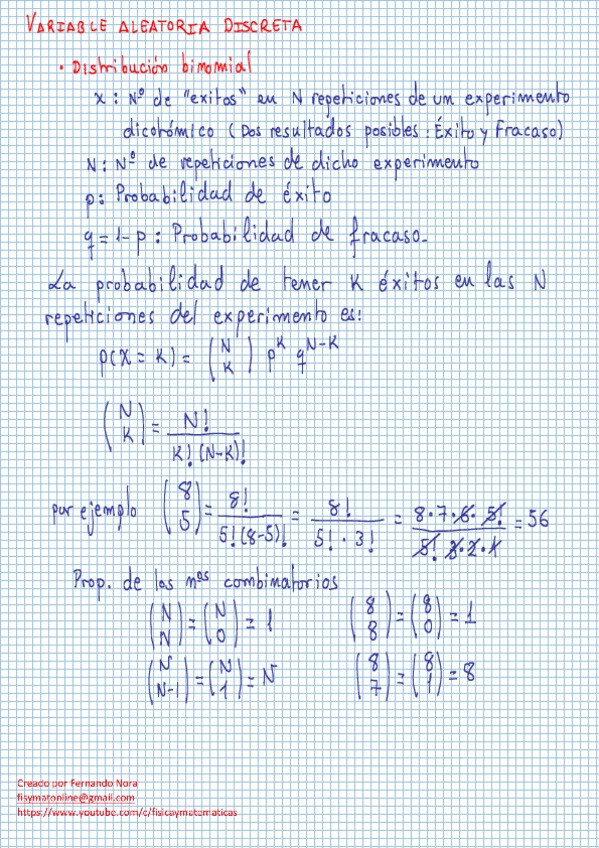 VARIABLE ALEATORIA DISCRETA
• Distribución binomial
x : Nº de "exitos" en N repeticiones de un experimento
dicotómico (Dos resultados posibles : Éxito y Fracaso)
N : Nº de repeticiones de dicho experimento
p : Probabilidad de éxito
q = 1 - p : Probabilidad de fracaso.
La probabilidad de tener K éxitos en las N
repeticiones del experimento es:
p(X = K) = (N K) p^K q^(N-K)
(N K) = N! / K! (N-K)!
por ejemplo (8 5) = 8! / 5! (8-5)! = 8! / 5! · 3! = 8 · 7 · 6 · 5! / 5! 3 · 2 · 1 = 56
Prop. de los nºs combinatorios
(N N) = (N 0) = 1 (8 8) = (8 0) = 1
(N N-1) = (N 1) = N (8 7) = (8 1) = 8
Creado por Fernando Nora
fisymatonline@gmail.com
https://www.youtube.com/c/fisicaymatematicas